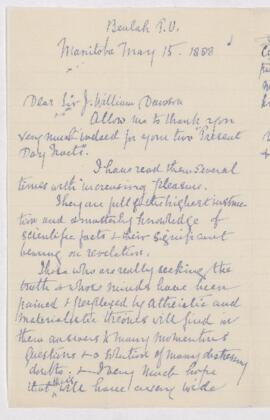 Beulah P.O.
Manitoba May 15. 1888
Dear Sir J. William Dawson
Allow me to thank you
very much indeed for your two "Present
Day Tracts".
I have read them several
times with increasing pleasure.
They are full of the highest instruc-
tion and a masterly knowledge of
scientific facts & their significant
bearing on revelation.
Those who are really seeking the
truth & whose minds have been
pained & perplexed by Atheistic and
materialistic theories will find in
them answers to many momentous
questions & a solution of many distressing
doubts; & I very much hope
that they will have a very wide